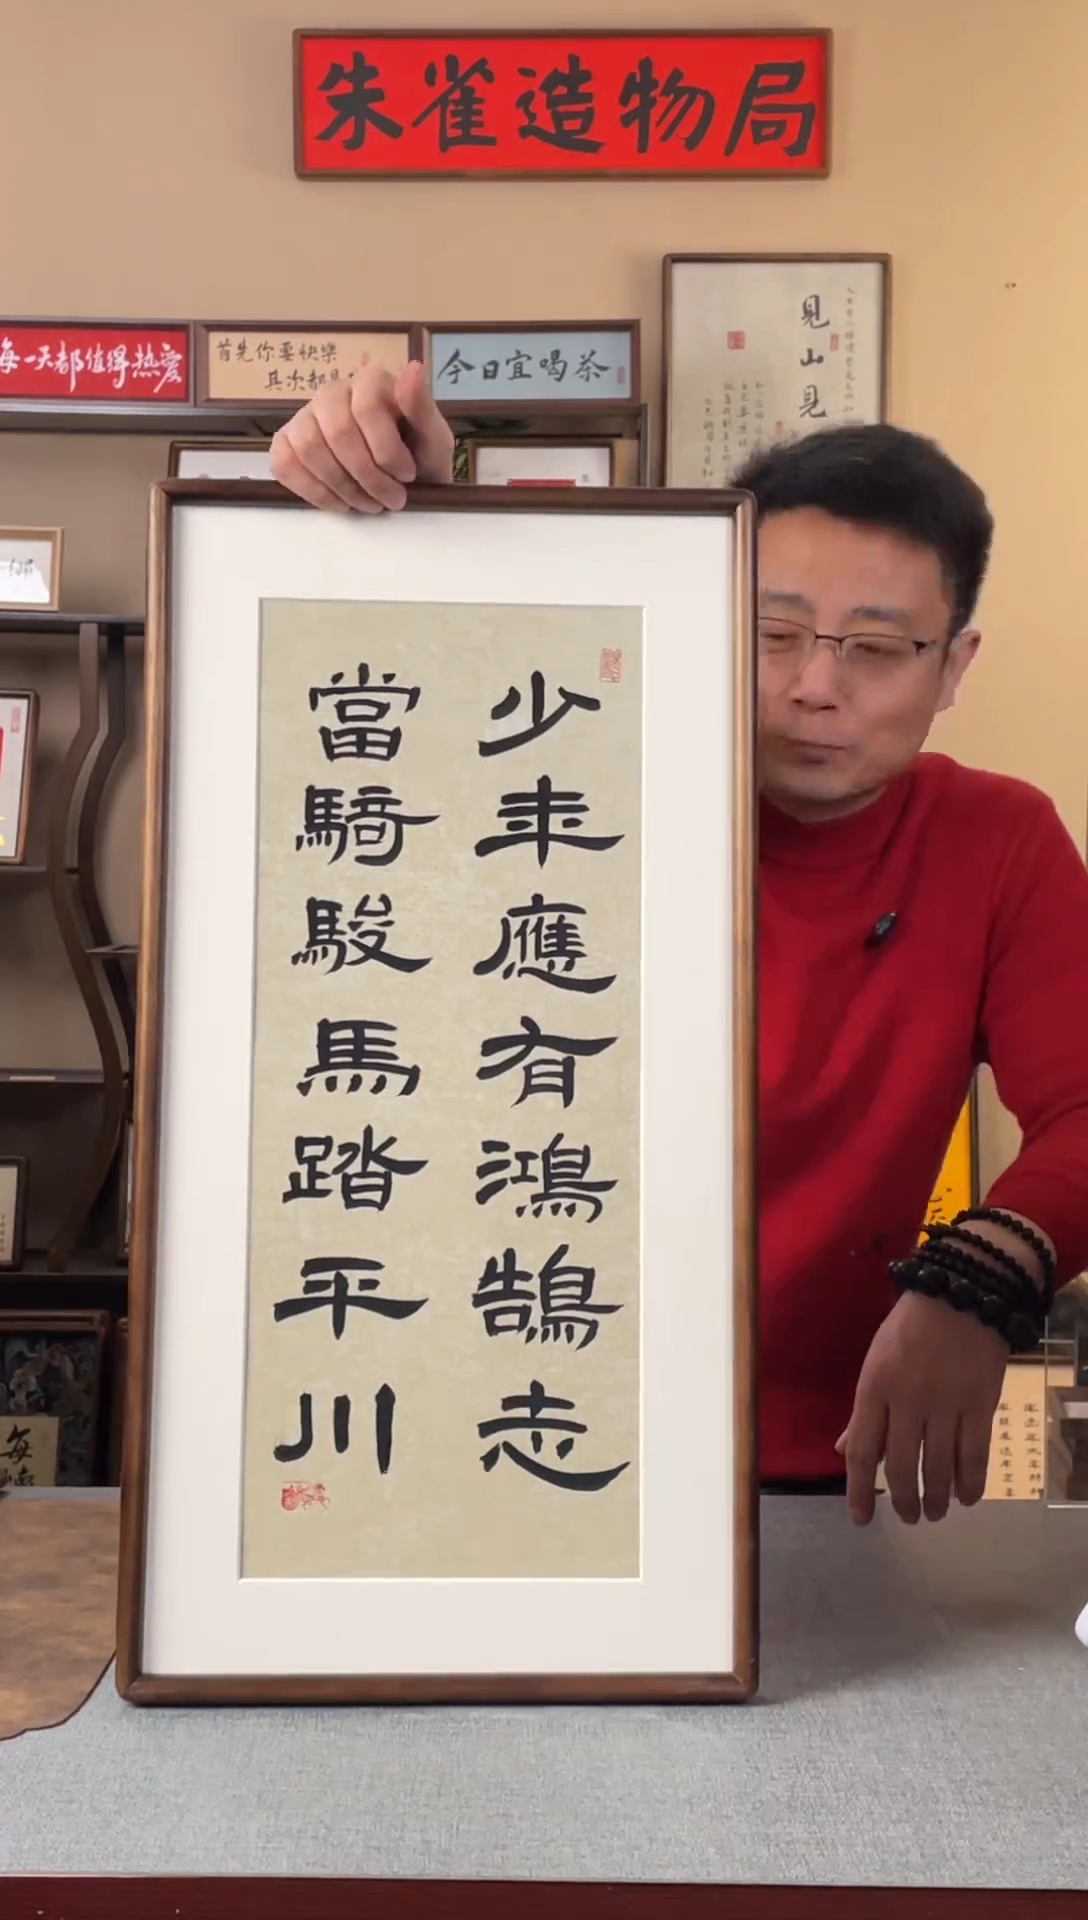 朱雀造物局
每一天都值得热爱
首先你要快樂
其次都是
今日宜喝茶
見山見
少年應有鴻鵠志
當騎駿馬踏平川